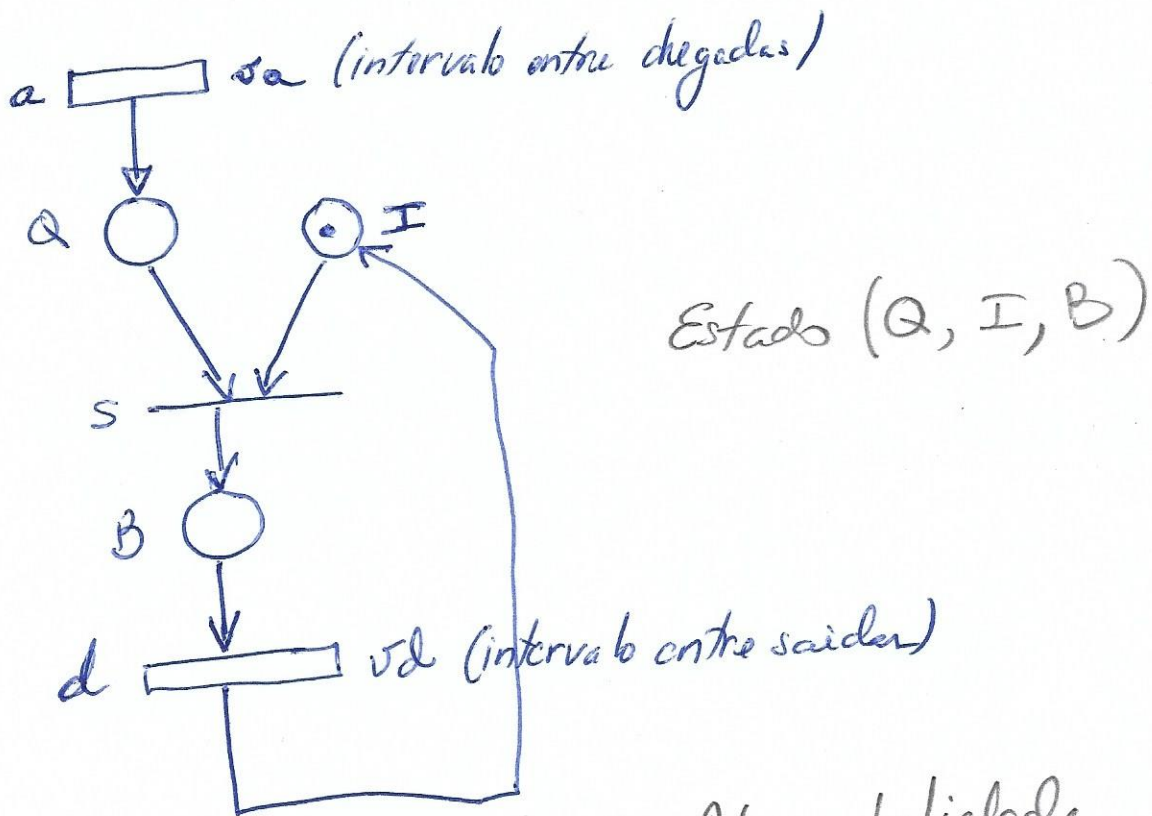 a va (intervalo entre chegadas)
Q I
Estado (Q, I, B)
S
B
d vd (intervalo entre saidas)